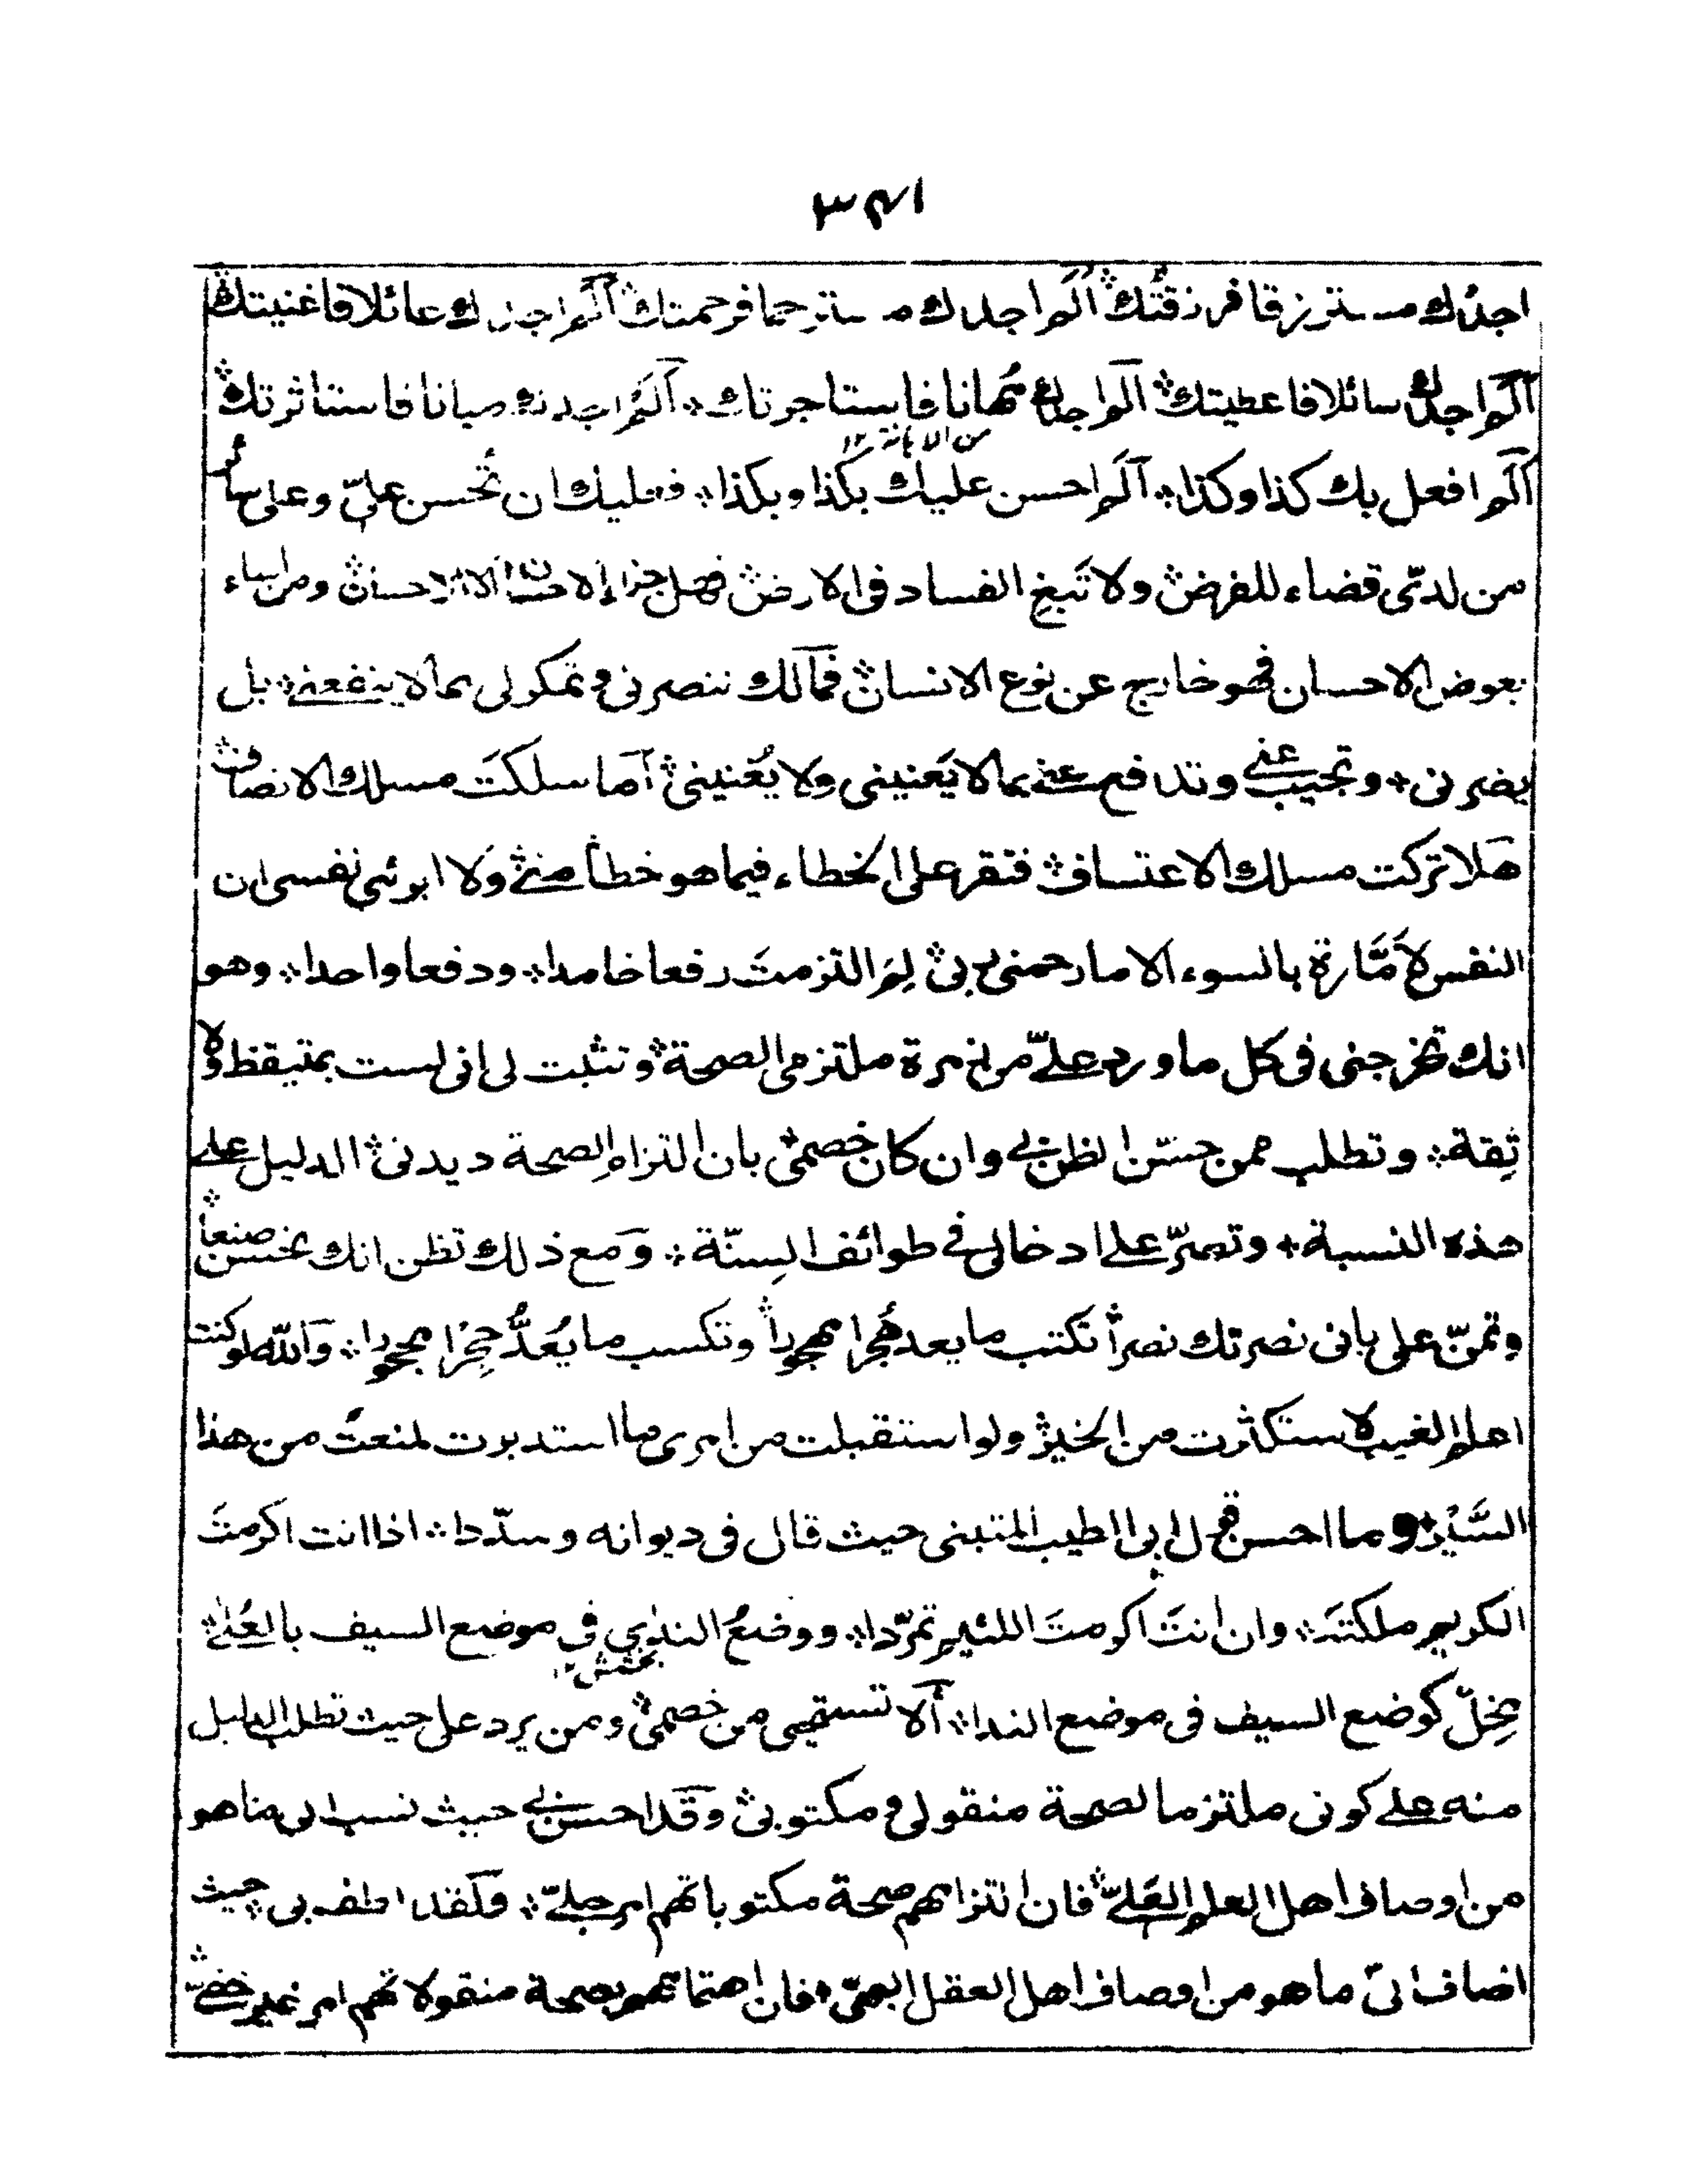 ٣٤١
اجدك مسترزقا فرزقتك ؞ الم اجدك مسترحما فرحمتك ؞ الم اجدك عائلا فاغنيتك ؞
الم اجدك سائلا فاعطيتك ؞ الم اجدك مُهانا فاستاجرتك ؞ الم اجدك مبانا فاستاثرتك ؞
من الاهانة ١٢
الم افعل بك كذا وكذا ؞ الم احسن عليك بكذا وبكذا ؞ فعليك ان تُحسن عليّ وعلى سائر
من لدىّ قضاء للفرض ؞ ولا تَبغِ الفساد فى الارض ؞ فهل جزاء الاحسان الا الاحسان ؞ ومن اساء
بعوض الاحسان فهو خارج عن نوع الانسان ؞ فمالك تنصرنى وتمكر لى بما لا ينفعنے ؞ بل
يضرنى + وتجيب عنے وتدافع عنے بما لا يَعنينى ولا يُغنينى ؞ اما سلكتَ مسلك الانصاف ؞
هلا تركت مسلك الاعتساف ؞ فتقر على الخطاء فيما هو خطأ منے ؞ ولا ابرئى نفسى ان
النفس لاَمَّارة بالسوء الا ما رحمنى ربى ؞ لِمَ التزمتَ رفعا خامدا ؞ ودفعا واحدا ؞ وهو
انك تخرجنى فى كل ما ورد علىّ من زمرة ملتزمى الصحة ؞ وتثبت لى انى لست بمتيقظ ولا
ثِقة ؞ وتطلب ممن حسّن الظن بے وان كان خصمى ؞ بان التزام الصحة ديدنى ؞ الدليل علے
هذه النسبة + وتصرّ على ادخالى فے طوائف السِنّة ؞ ومع ذلك تظن انك تحسن صنعا ؞
وتمنّ على بانى نصرتك نصراً تكتب ما يعد هُجرا مهجورا ؞ وتكسب ما يُعَدُّ حِجْرا محجورا ؞ والله لو كنت
اعلم الغيب لاستكثرت من الخير ؞ ولو استقبلت من امرى ما استدبرت لمنعتُ من هذا
السَّيْر ؞ وما احسن قول ابى الطيب المتبنى حيث قال فى ديوانه وسدّدا ؞ اذا انت اكرمتَ
الكريم ملكتَه ؞ وان انتَ اكرمتَ اللئيم تمرّدا ؞ ووضعُ الندىٰ فى موضع السيف بالعُلىٰ ؞
بخشش ١٢
مِخلّ كوضع السيف فى موضع الندا ؞ ألا تستحيى من خصمى ؞ ومن يرد على حيث تطلب الدليل
منه علے كونى ملتزما لصحة منقولى ومكتوبى ؞ وقد احسن بے حيث نسب الى ما هو
من اوصاف اهل العلم العَلىّ ؞ فان التزامهم صحة مكتوباتهم امر جلىّ ؞ ولقد الطف بى حيث
اضاف الىّ ما هو من اوصاف اهل العقل البهىّ ؞ فان اهتمامهم بصحة منقولاتهم امر غير خفىّ ؞